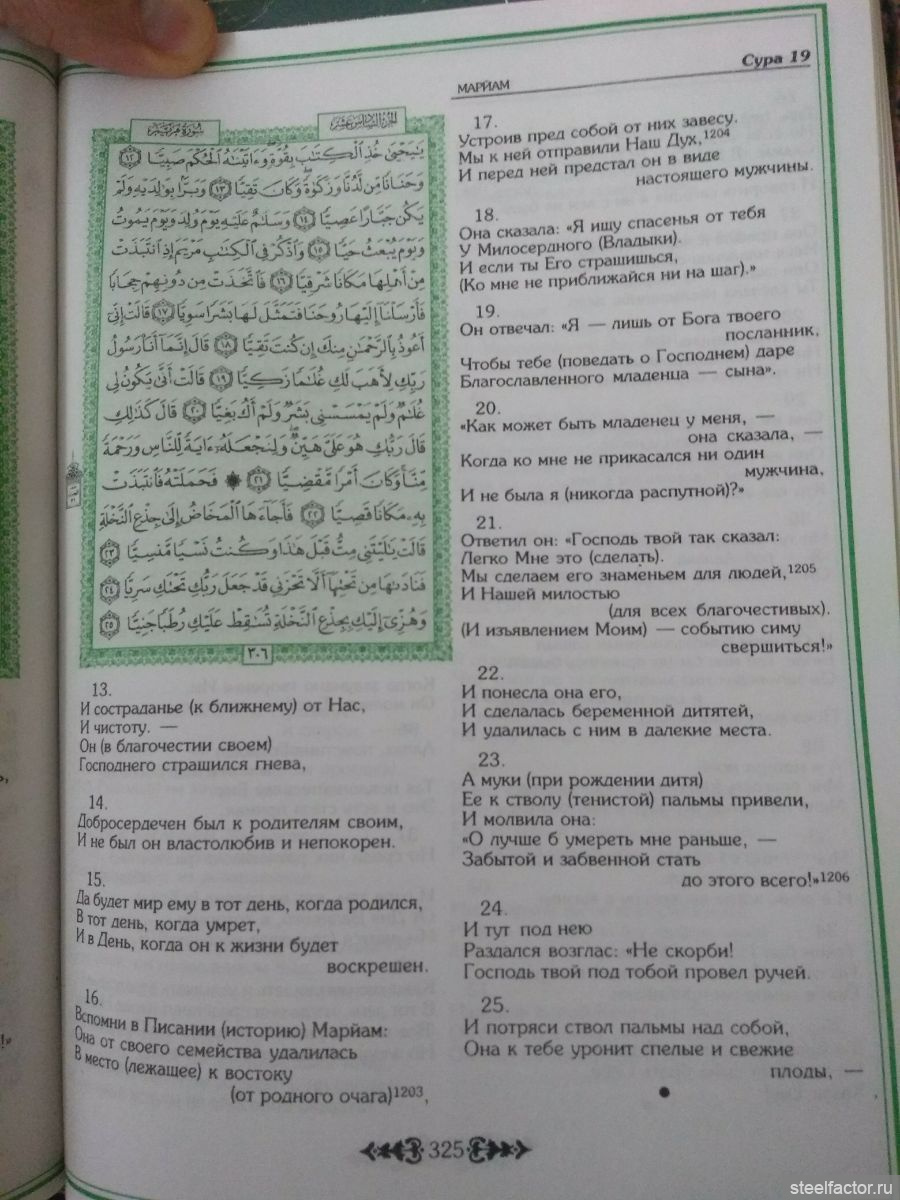 Сура 19
МАРЙАМ
سورة مريم
الجزء السادس عشر
يَٰيَحْيَىٰ خُذِ ٱلْكِتَٰبَ بِقُوَّةٍ وَءَاتَيْنَٰهُ ٱلْحُكْمَ صَبِيًّا ١٢
وَحَنَانًا مِّن لَّدُنَّا وَزَكَوٰةً وَكَانَ تَقِيًّا ١٣ وَبَرًّۢا بِوَٰلِدَيْهِ وَلَمْ
يَكُن جَبَّارًا عَصِيًّا ١٤ وَسَلَٰمٌ عَلَيْهِ يَوْمَ وُلِدَ وَيَوْمَ يَمُوتُ
وَيَوْمَ يُبْعَثُ حَيًّا ١٥ وَٱذْكُرْ فِى ٱلْكِتَٰبِ مَرْيَمَ إِذِ ٱنتَبَذَتْ
مِنْ أَهْلِهَا مَكَانًا شَرْقِيًّا ١٦ فَٱتَّخَذَتْ مِن دُونِهِمْ حِجَابًا
فَأَرْسَلْنَآ إِلَيْهَا رُوحَنَا فَتَمَثَّلَ لَهَا بَشَرًا سَوِيًّا ١٧ قَالَتْ إِنِّىٓ
أَعُوذُ بِٱلرَّحْمَٰنِ مِنكَ إِن كُنتَ تَقِيًّا ١٨ قَالَ إِنَّمَآ أَنَا۠ رَسُولُ
رَبِّكِ لِأَهَبَ لَكِ غُلَٰمًا زَكِيًّا ١٩ قَالَتْ أَنَّىٰ يَكُونُ لِى
غُلَٰمٌ وَلَمْ يَمْسَسْنِى بَشَرٌ وَلَمْ أَكُ بَغِيًّا ٢٠ قَالَ كَذَٰلِكِ
قَالَ رَبُّكِ هُوَ عَلَىَّ هَيِّنٌ وَلِنَجْعَلَهُۥٓ ءَايَةً لِّلنَّاسِ وَرَحْمَةً
مِّنَّا وَكَانَ أَمْرًا مَّقْضِيًّا ٢١ ۞ فَحَمَلَتْهُ فَٱنتَبَذَتْ
بِهِۦ مَكَانًا قَصِيًّا ٢٢ فَأَجَآءَهَا ٱلْمَخَاضُ إِلَىٰ جِذْعِ ٱلنَّخْلَةِ
قَالَتْ يَٰلَيْتَنِى مِتُّ قَبْلَ هَٰذَا وَكُنتُ نَسْيًا مَّنسِيًّا ٢٣
فَنَادَىٰهَا مِن تَحْتِهَآ أَلَّا تَحْزَنِى قَدْ جَعَلَ رَبُّكِ تَحْتَكِ سَرِيًّا ٢٤
وَهُزِّىٓ إِلَيْكِ بِجِذْعِ ٱلنَّخْلَةِ تُسَٰقِطْ عَلَيْكِ رُطَبًا جَنِيًّا ٢٥
٣٠٦
13.
И состраданье (к ближнему) от Нас,
И чистоту. —
Он (в благочестии своем)
Господнего страшился гнева,
14.
Добросердечен был к родителям своим,
И не был он властолюбив и непокорен.
15.
Да будет мир ему в тот день, когда родился,
В тот день, когда умрет,
И в День, когда он к жизни будет
воскрешен.
16.
Вспомни в Писании (историю) Марйам:
Она от своего семейства удалилась
В место (лежащее) к востоку
(от родного очага)1203,
17.
Устроив пред собой от них завесу.
Мы к ней отправили Наш Дух,1204
И перед ней предстал он в виде
настоящего мужчины.
18.
Она сказала: «Я ищу спасенья от тебя
У Милосердного (Владыки).
И если ты Его страшишься,
(Ко мне не приближайся ни на шаг).»
19.
Он отвечал: «Я — лишь от Бога твоего
посланник,
Чтобы тебе (поведать о Господнем) даре
Благославленного младенца — сына».
20.
«Как может быть младенец у меня, —
она сказала, —
Когда ко мне не прикасался ни один
мужчина,
И не была я (никогда распутной)?»
21.
Ответил он: «Господь твой так сказал:
Легко Мне это (сделать).
Мы сделаем его знаменьем для людей,1205
И Нашей милостью
(для всех благочестивых).
(И изъявлением Моим) — событию симу
свершиться!»
22.
И понесла она его,
И сделалась беременной дитятей,
И удалилась с ним в далекие места.
23.
А муки (при рождении дитя)
Ее к стволу (тенистой) пальмы привели,
И молвила она:
«О лучше б умереть мне раньше, —
Забытой и забвенной стать
до этого всего!»1206
24.
И тут под нею
Раздался возглас: «Не скорби!
Господь твой под тобой провел ручей.
25.
И потряси ствол пальмы над собой,
Она к тебе уронит спелые и свежие
плоды, —
325
steelfactor.ru